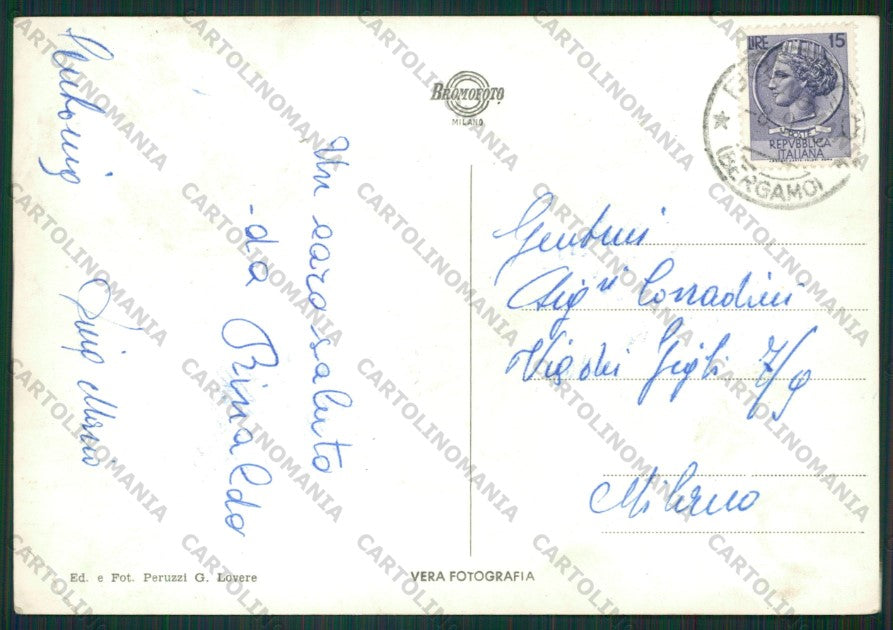 BROMOFOTO
MILANO
LIRE 15
POSTE
REPVBBLICA
ITALIANA
(BERGAMO)
Un caro saluto
-da Rinaldo
Luigi Mario
Gentmi
Sigri Corradini
Via dei Gigli 7/9
Milano
Ed. e Fot. Peruzzi G. Lovere
VERA FOTOGRAFIA
CARTOLINOMANIA